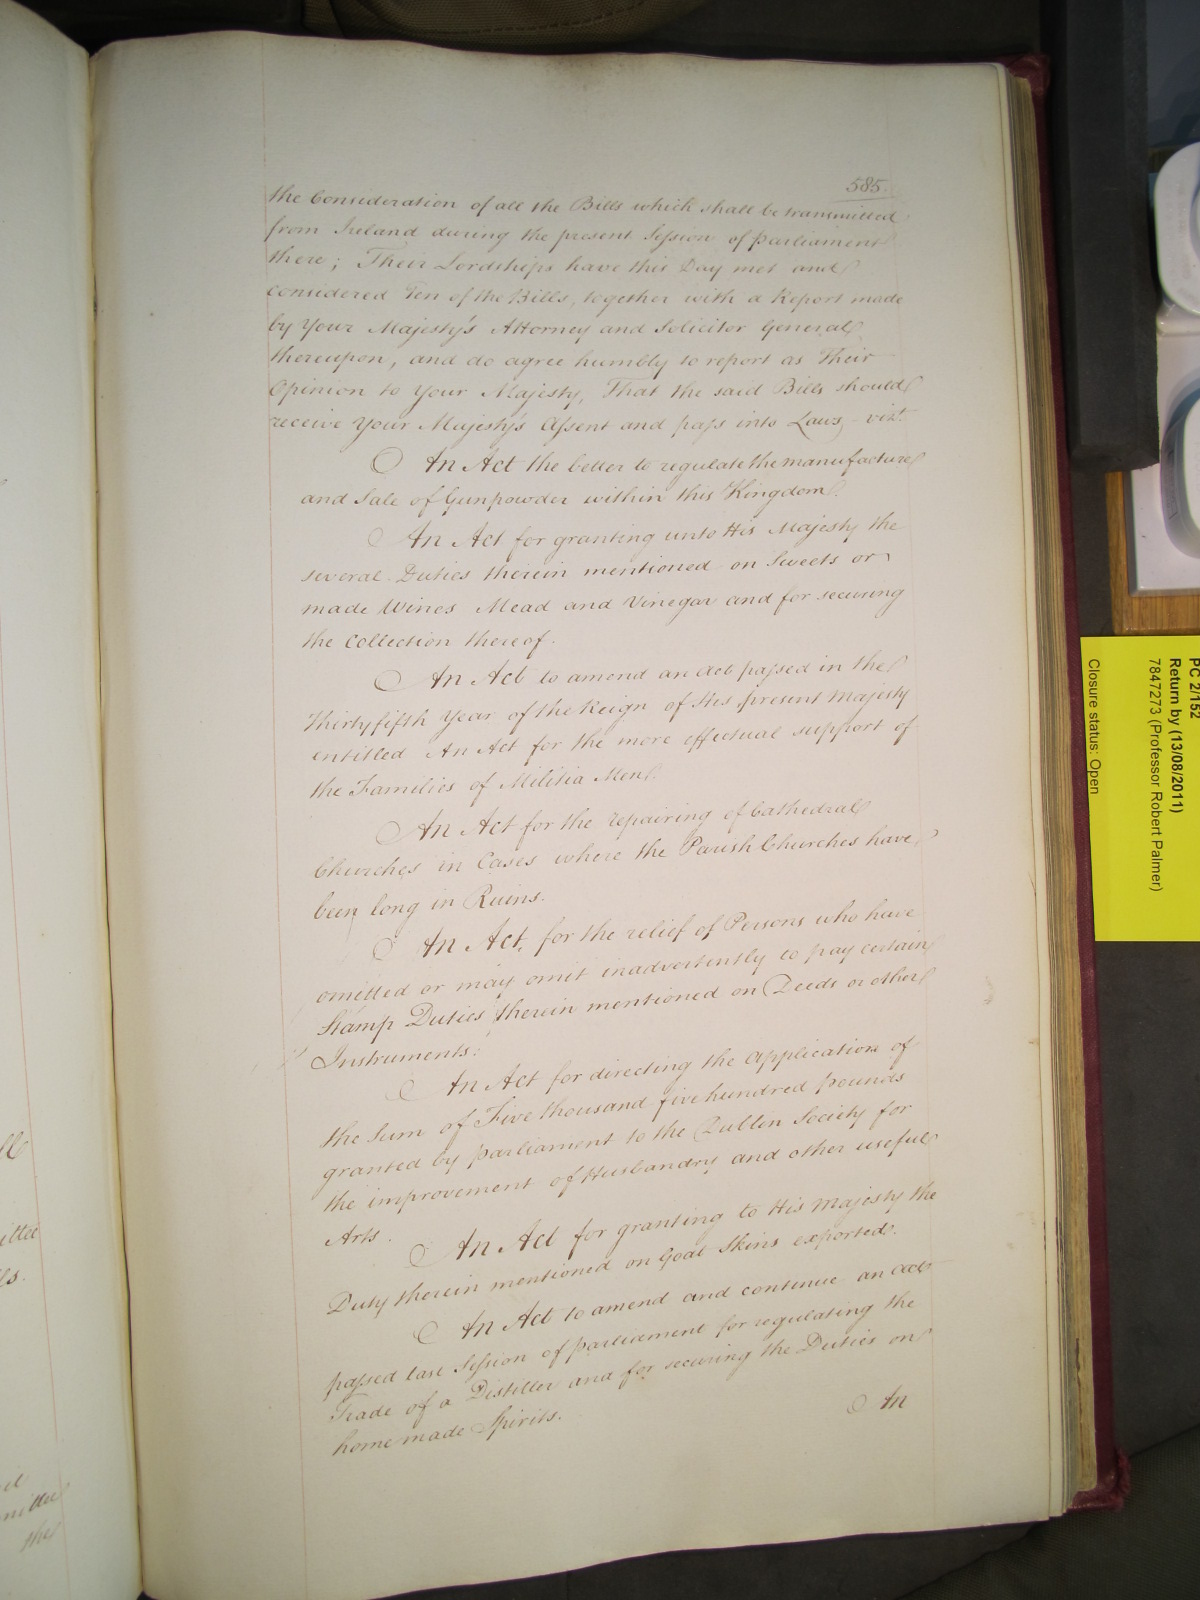 585.
the Consideration of all the Bills which shall be transmitted
from Ireland during the present Session of parliament
there; Their Lordships have this Day met and
considered Ten of the Bills, together with a Report made
by Your Majesty's Attorney and Solicitor General
thereupon, and do agree humbly to report as Their
Opinion to Your Majesty, That the said Bills should
receive Your Majesty's Assent and pass into Laws, vizt.
An Act the better to regulate the manufacture
and Sale of Gunpowder within this Kingdom.
An Act for granting unto His Majesty the
several Duties therein mentioned on Sweets or
made Wines Mead and Vinegar and for securing
the Collection thereof.
An Act to amend an act passed in the
thirty fifth Year of the Reign of His present Majesty
entitled An Act for the more effectual support of
the Families of Militia Men.
An Act for the repairing of Cathedral
Churches in Cases where the Parish Churches have
been long in Ruins.
An Act, for the relief of Persons who have
omitted or may omit inadvertently to pay certain
Stamp Duties therein mentioned on Deeds or other
Instruments.
An Act for directing the application of
the Sum of Five thousand five hundred pounds
granted by parliament to the Dublin Society for
the improvement of Husbandry and other useful
Arts.
An Act for granting to His Majesty the
Duty therein mentioned on Goat Skins exported.
An Act to amend and continue an act
passed last Session of parliament for regulating the
Trade of a Distiller and for securing the Duties on
home made Spirits.
An
ittee
the
PC 2/152
Return by (13/08/2011)
7847273 (Professor Robert Palmer)
Closure status: Open